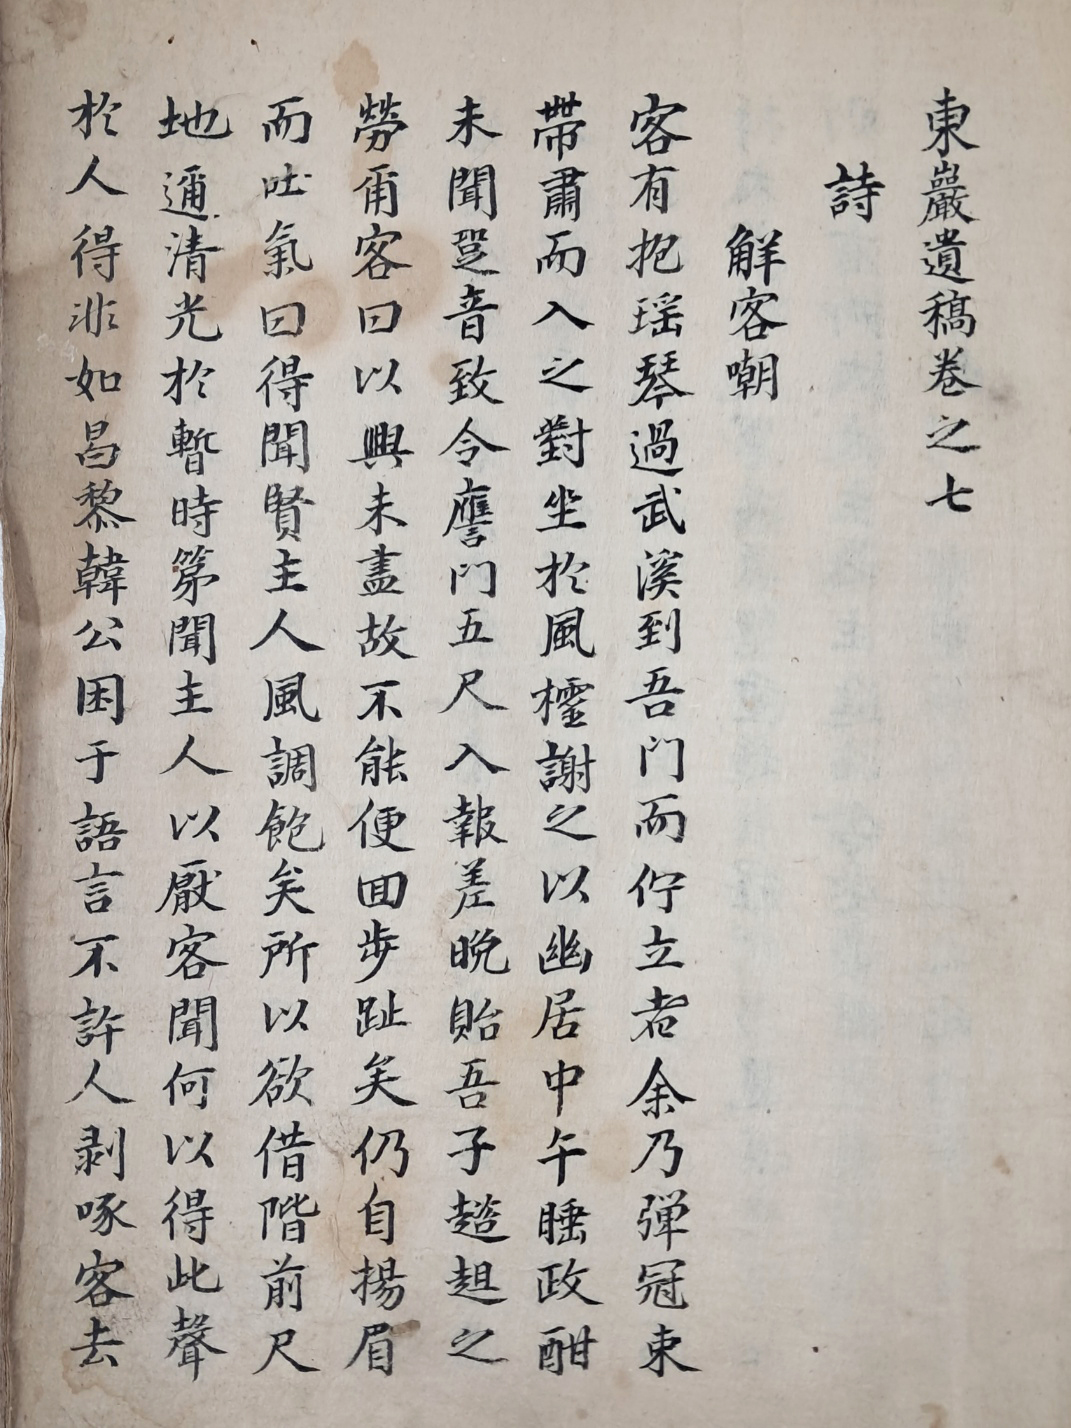 東巖遺稿卷之七
詩
解客嘲
客有抱瑶琴過武溪到吾門而佇立者余乃弾冠束
帶肅而入之對坐於風櫺謝之以幽居中午睡政酣
未聞跫音致令譍門五尺入報差晩貽吾子趦趄之
勞甭客曰以興未盡故不能便回步趾矣仍自揚眉
而吐氣曰得聞賢主人風調飽矣所以欲借階前尺
地邇清光於暫時第聞主人以厭客聞何以得此聲
於人得非如昌黎韓公困于語言不許人剥啄客去